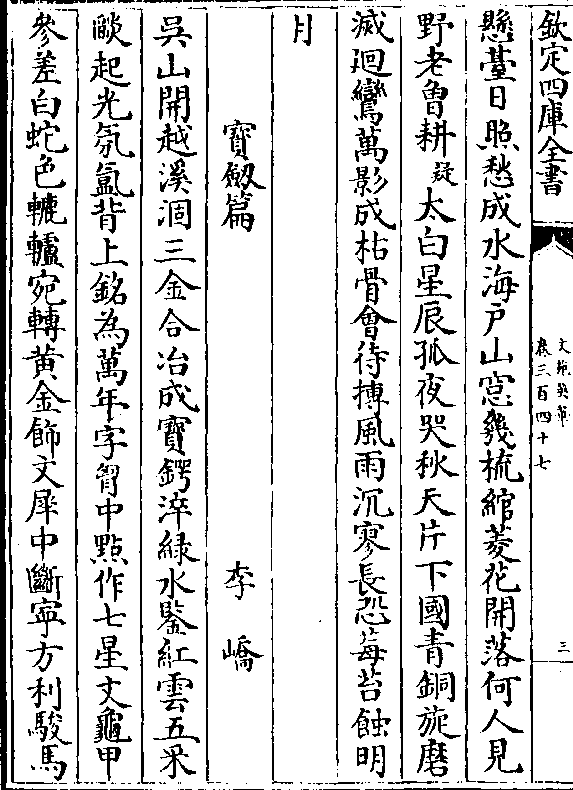 欽定四庫全書
文苑英華
卷三百四十七
三
懸臺日照愁成水海户山窓幾梳綰菱花開落何人見
野老曾耕疑太白星辰孤夜哭秋天片下國青銅旋磨
滅迴鸞萬影成枯骨會待摶風雨沉寥長恐莓苔蝕明
月
寶劔篇
李嶠
吳山開越溪涸三金合冶成寳鍔淬緑水鑒紅雲五采
燄起光氛氳背上銘為萬年字胷中點作七星文龜甲
參差白蛇色轆轤宛轉黄金飾文犀中斷寜方利駿馬